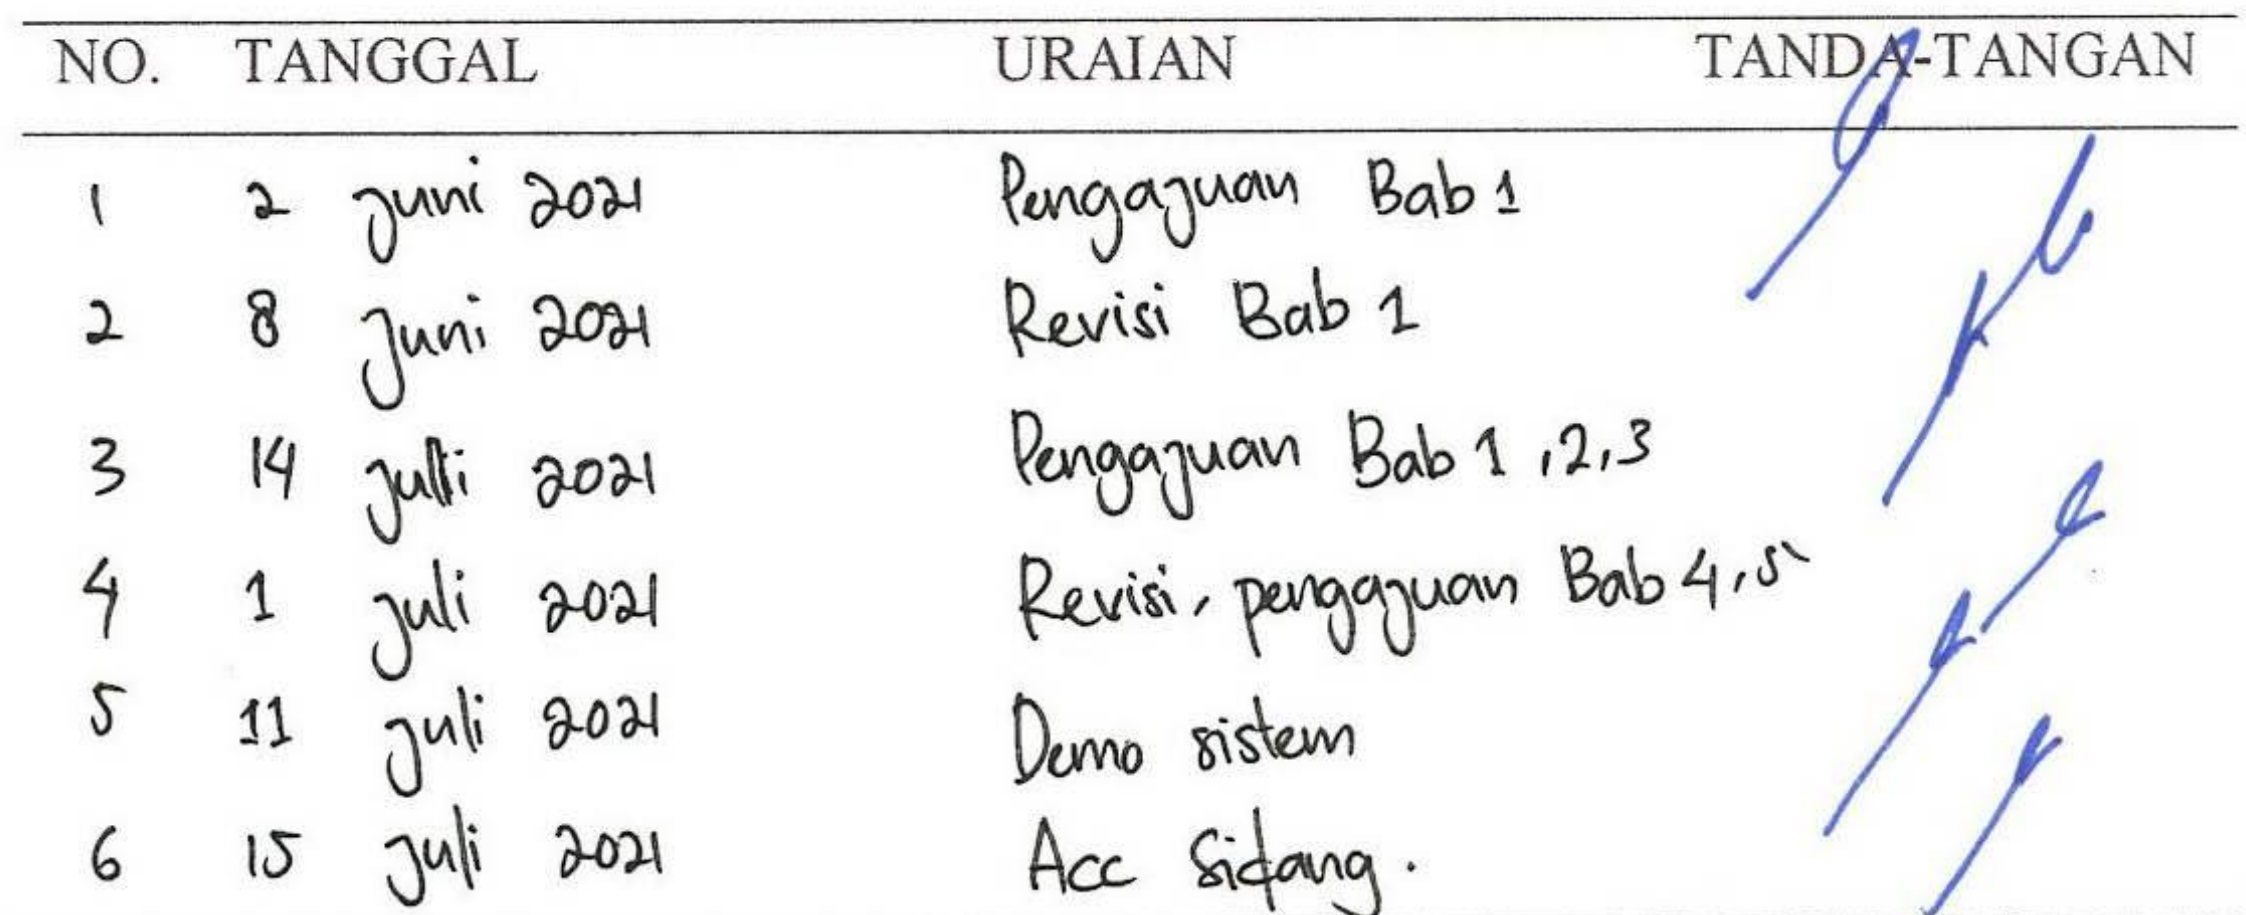 NO. TANGGAL URAIAN TANDA-TANGAN
1 2 Juni 2021 Pengajuan Bab 1
2 8 Juni 2021 Revisi Bab 1
3 14 2021 Pengajuan Bab 1,2,3
4 1 Juli 2021 Revisi, pengajuan Bab 4,5
5 11 Juli 2021 Demo sistem
6 15 Juli 2021 Acc Sidang.